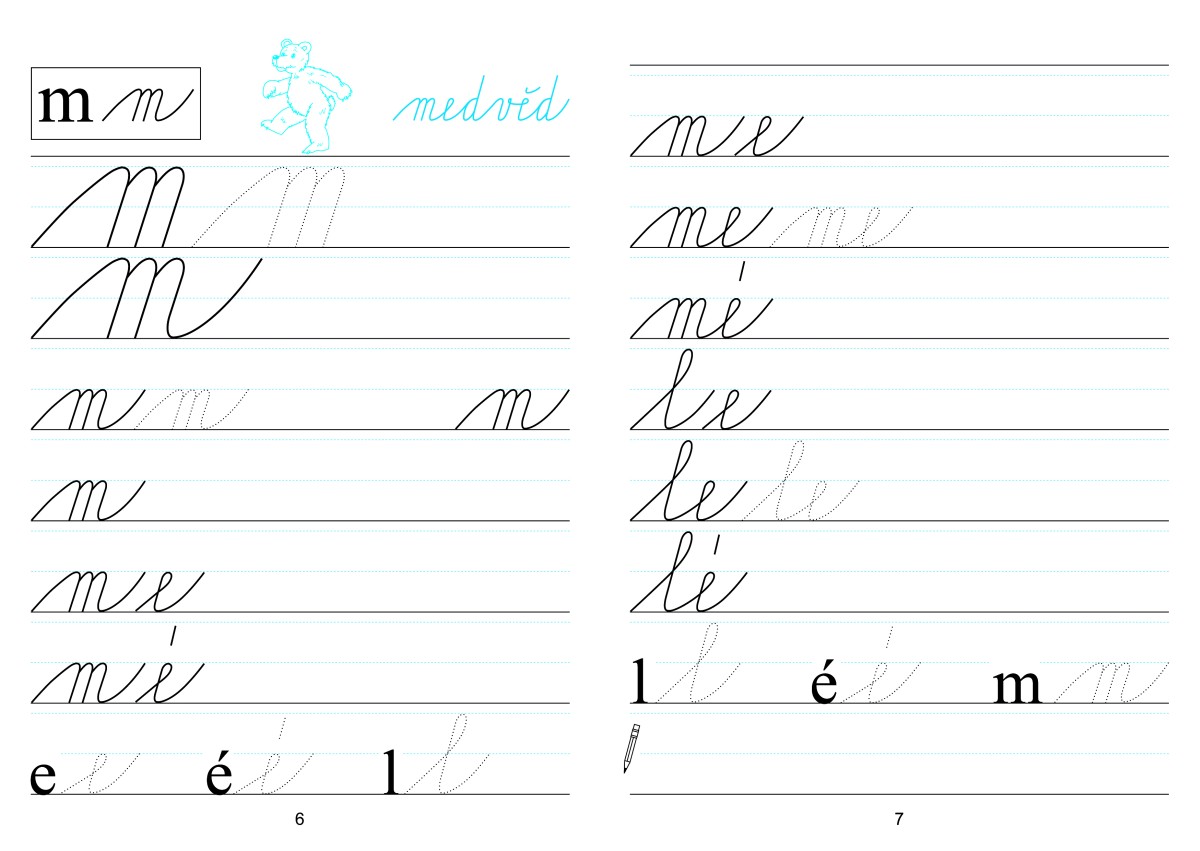 m m medvěd
m m
m
m m m
m
m e
m é
e e é é l l
6
m e
me me
mé
l e
le le
lé
l l é é m m
7